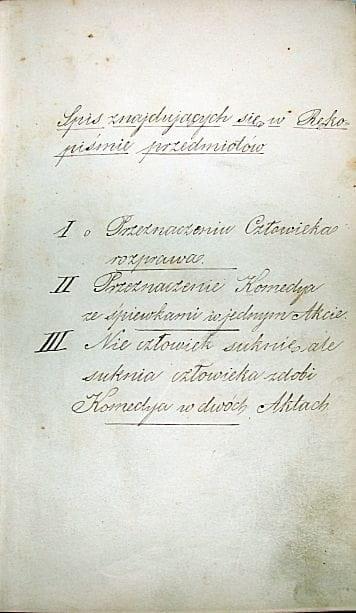 Spis znajdujących się w Ręko-
piśmie przedmiotów
I o Przeznaczeniu Człowieka
rozprawa.
II Przeznaczenie Komedya
ze śpiewkami w jednym Akcie.
III Nie człowiek suknię, ale
suknia człowieka zdobi
Komedya w dwóch Aktach